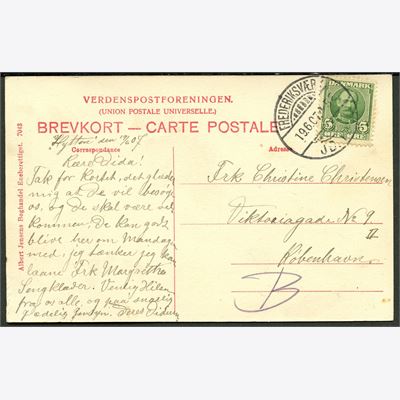 VERDENSPOSTFORENINGEN.
(UNION POSTALE UNIVERSELLE.)
BREVKORT — CARTE POSTALE
Hytten den /6 07
Correspondance
Adresse
Kære Dida!
Tak for Kortet, det glæder
mig at De vil besøge
os, og De skal være vel
kommen. De kan godt
blive her om Mandag
med, jeg tænker jeg kan
laane Frk Margrethes
Sengklæder. Venlig Hilsen
fra os alle, og paa
Deres
Frk Christine Christensen
Viktoriagade No 9
II
København
B
Albert Jensens Boghandel Eneberettiget. 7043
FREDERIKSVÆRK
19.6.07
DANMARK
5 5
ØRE